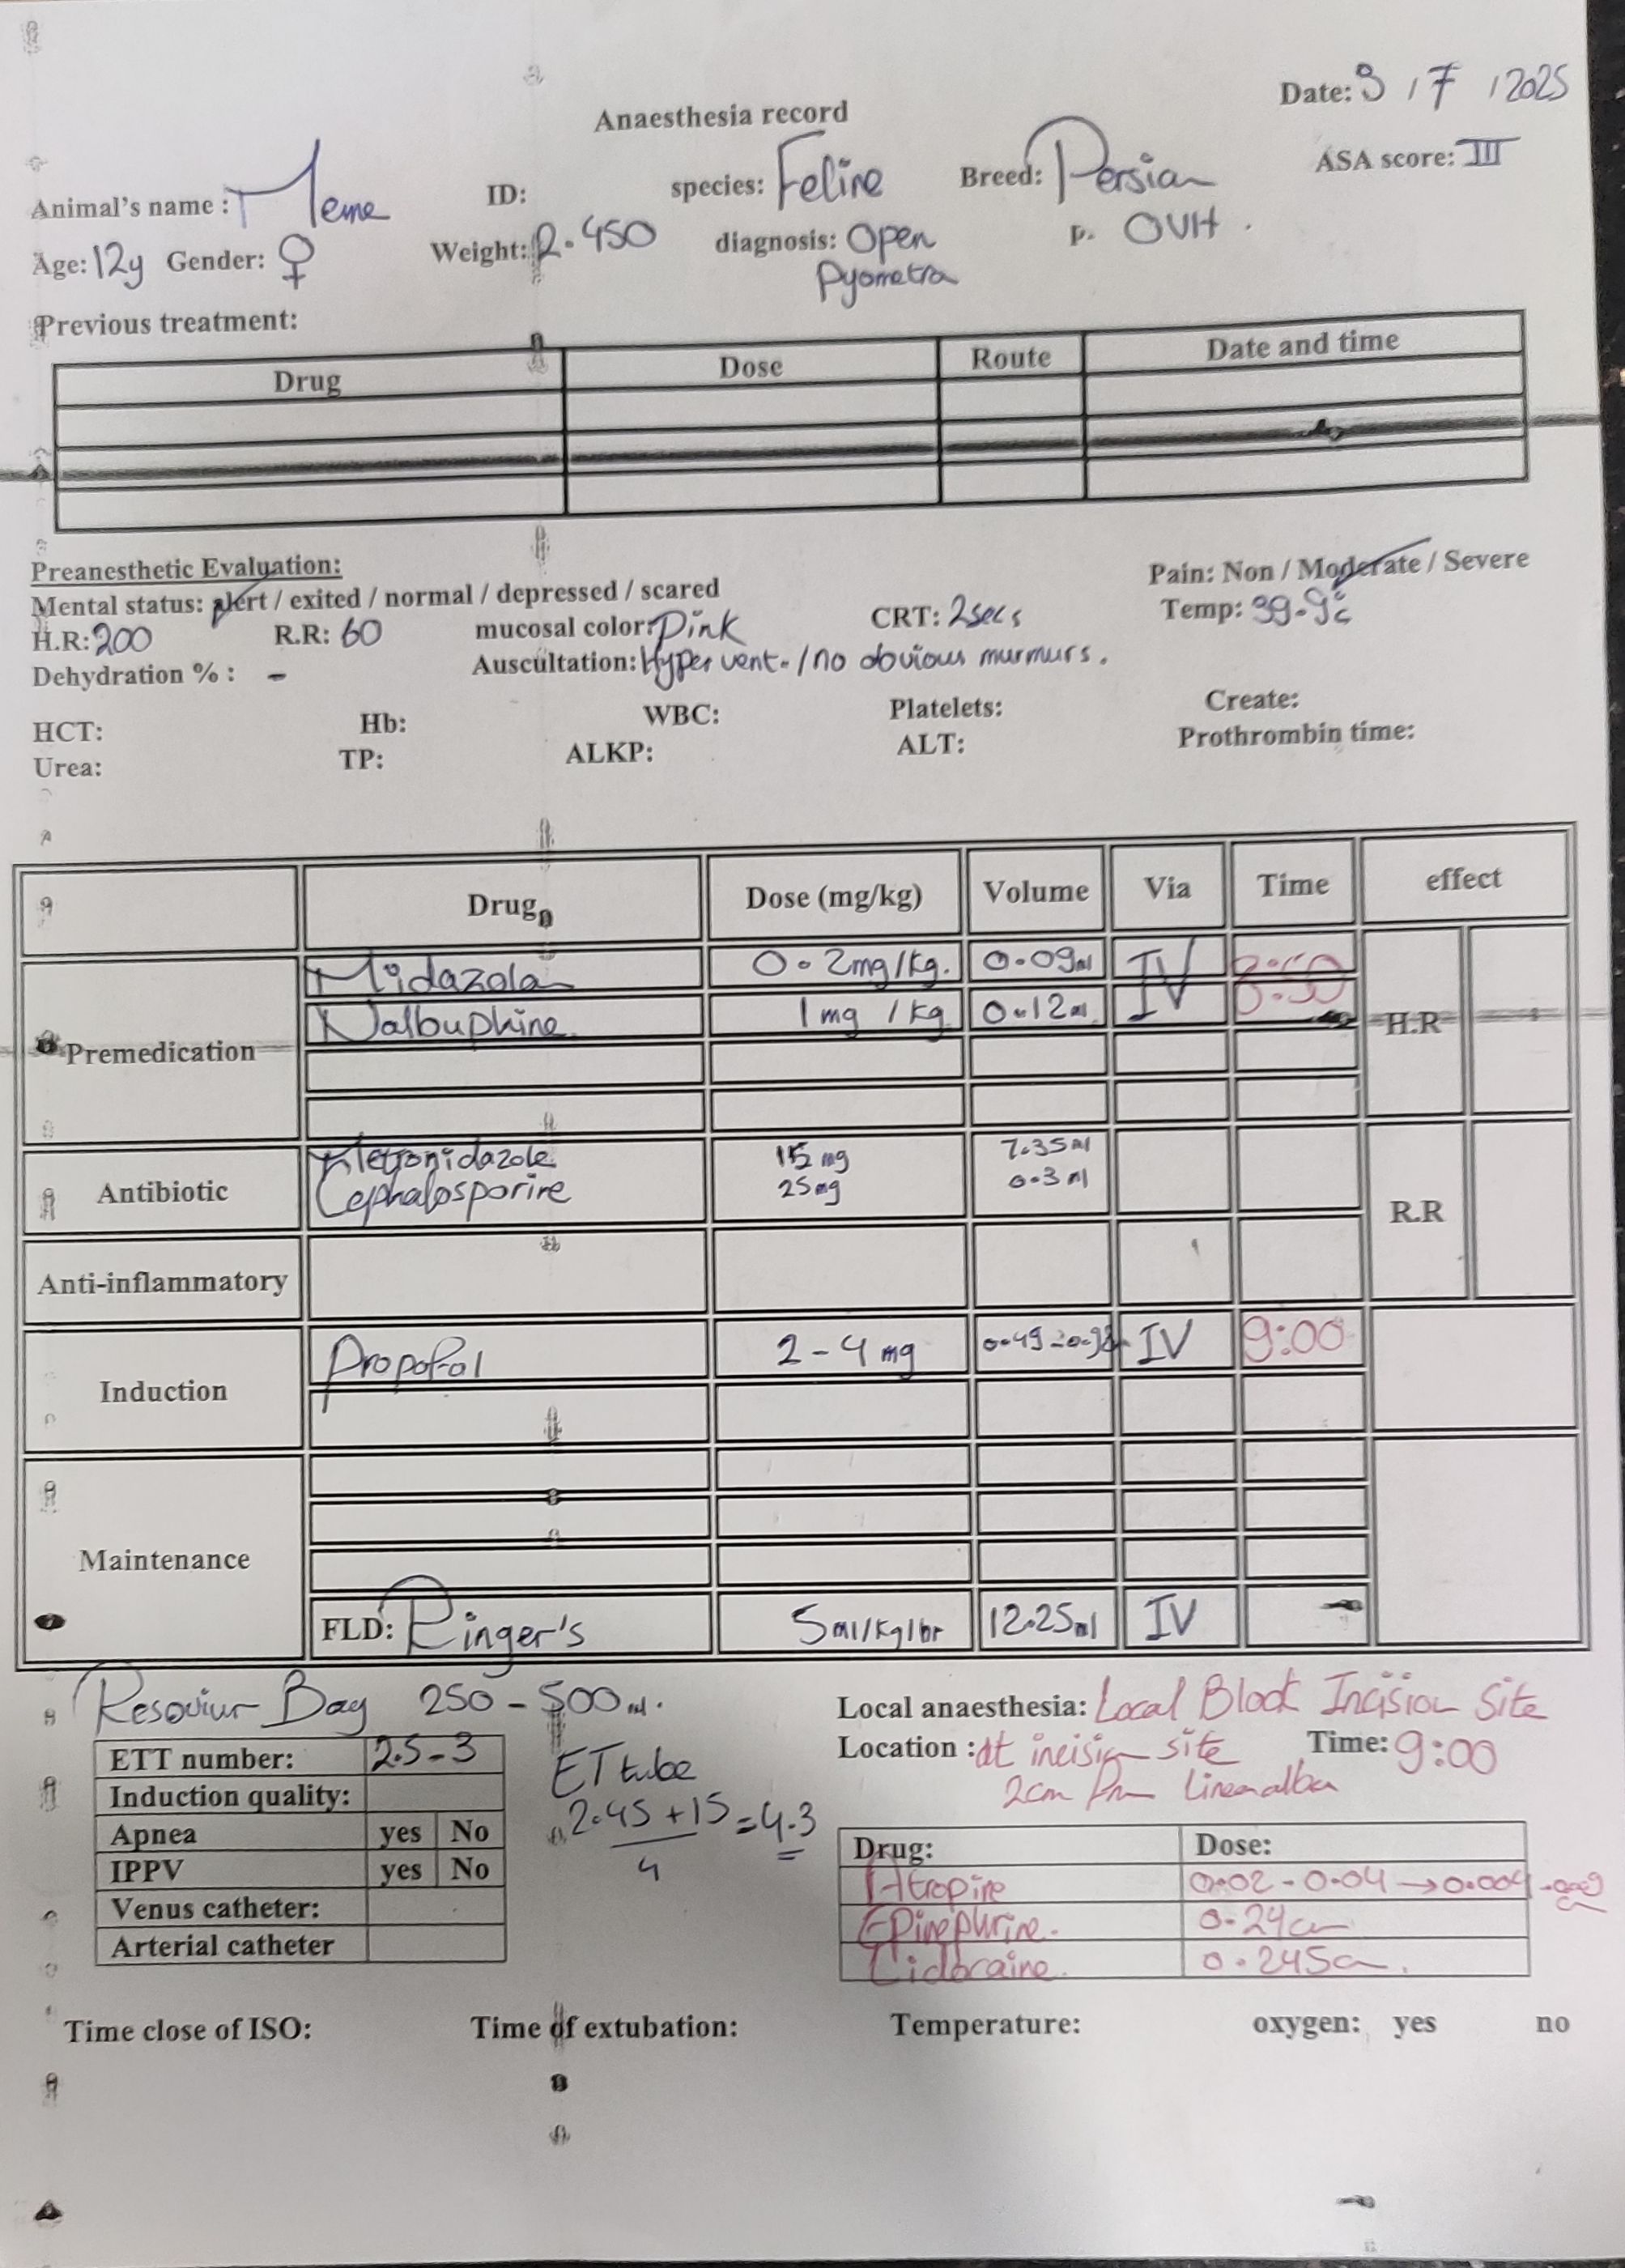 Date: 9 / 7 / 2025
Anaesthesia record
Animal's name : Meme ID: species: Feline Breed: Persian ASA score: III
Age: 12y Gender: ♀ Weight: 2.450 diagnosis: Open Pyometra p. OVH .
Previous treatment:
Drug Dose Route Date and time
Preanesthetic Evaluation: Pain: Non / Moderate / Severe
Mental status: alert / exited / normal / depressed / scared
H.R: 200 R.R: 60 mucosal color: Pink CRT: 2secs Temp: 39.9°c
Dehydration % : - Auscultation: Hyper vent. / no obvious murmurs.
HCT: Hb: WBC: Platelets: Create:
Urea: TP: ALKP: ALT: Prothrombin time:
Drug Dose (mg/kg) Volume Via Time effect
Premedication
Midazolam 0.2mg/kg. 0.09ml IV
Nalbuphine. 1mg /kg 0.12ml IV 8:50
H.R
Antibiotic
Metronidazole 15 mg 7.35ml
Cephalosporine 25mg 0.3ml
R.R
Anti-inflammatory
Induction
Propofol 2-4 mg 0.49-0.98 IV 9:00
Maintenance
FLD: Ringer's 5ml/kg/hr 12.25ml IV
Resoviur Bag 250 - 500 ml.
Local anaesthesia: Local Block Incision Site
Location : at incision site Time: 9:00
2cm linea alba
ETT number: 2.5-3
Induction quality:
Apnea yes No
IPPV yes No
Venus catheter:
Arterial catheter
ET tube
2.45 + 15 = 4.3
4
Drug: Dose:
Atropine 0.02 - 0.04 → 0.004 - 0.009
Epinephrine. 0.24cm
Lidocaine. 0.245cm.
Time close of ISO: Time of extubation: Temperature: oxygen: yes no